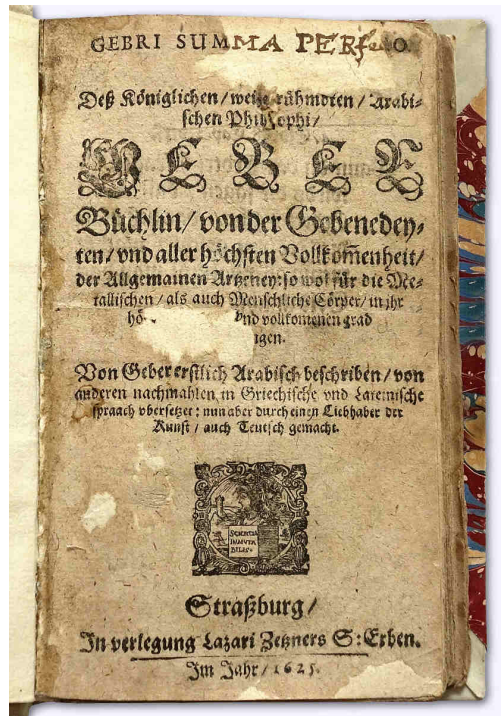 GEBRI SUMMA PERF O.
Deß Königlichen / weit rühmdten / Arabi-
schen Philosophi /
GEBER
Büchlin / von der Gebenedey-
ten / vnd aller höchsten Vollkom̄enheit /
der Allgemainen Artzeney: so wol für die Me-
tallischen / als auch Menschliche Cörper / in jhr
hö- vnd vollkomenen grad
igen.
Von Geber erstlich Arabisch beschriben / von
anderen nachmahlen in Griechische vnd Lateinische
spraach vbersetzet: nun aber durch einen Liebhaber der
Kunst / auch Teutsch gemacht.
SCIENTIA
IMMVTA
BILIS.
Straßburg /
In verlegung Lazari Zetzners S: Erben.
Im Jahr / 1625.